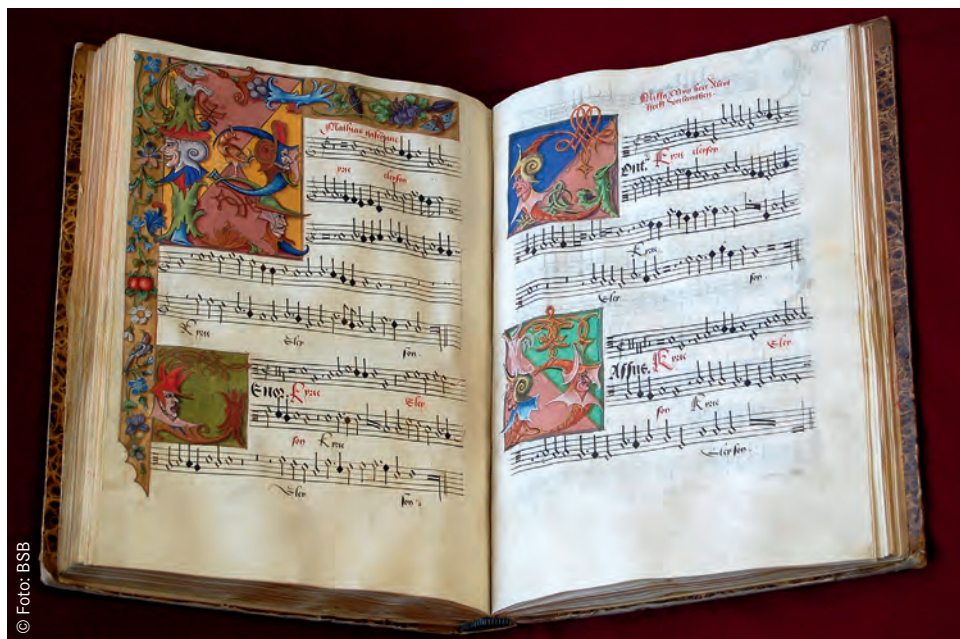 Mathias
yrie eleyson
Kyrie Eley son.
Enor. Kyrie Eley
son Kyrie
Eley son.
Missa
ont. Kyrie eleyson
Kyrie
Eley son.
Assus. Kyrie Eley
son Kyrie
Eleyson.
© Foto: BSB